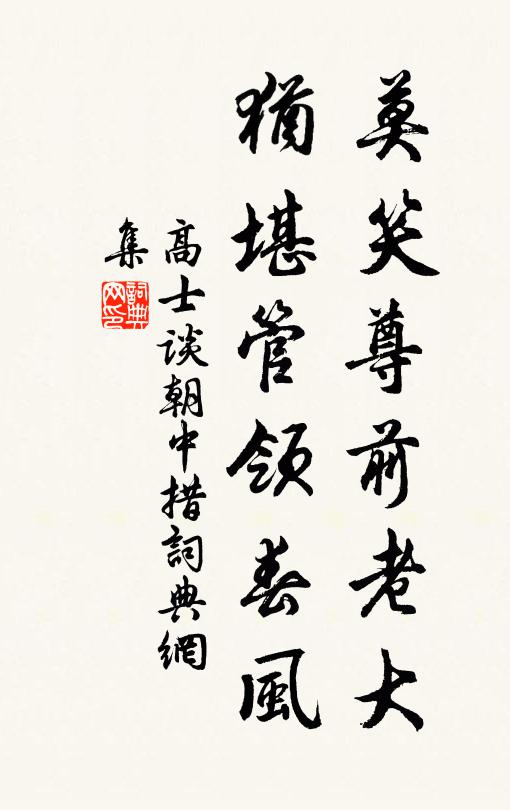 莫笑尊前老大
猶堪管領春風
高士谈朝中措詞典網
集
詞典
网印